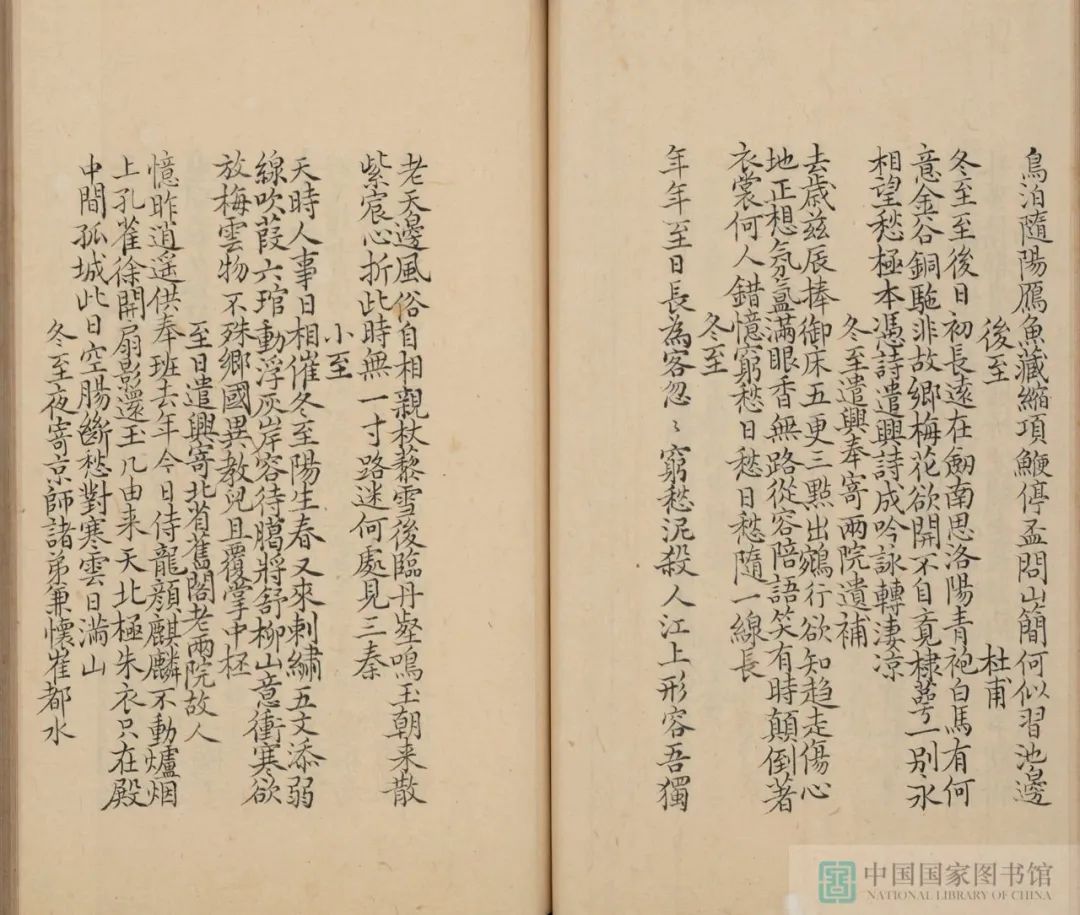 鳥泊隨陽鴈魚藏縮項鯿停盃問山簡何似習池邊
後至 杜甫
冬至至後日初長遠在劒南思洛陽青袍白馬有何
意金谷銅駞非故鄉梅花欲開不自竟棣萼一別永
相望愁極本憑詩遣興詩成吟詠轉淒凉
冬至遣興奉寄兩院遺補
去歲兹辰捧御床五更三點出鵷行欲知趨走傷心
地正想氛氳滿眼香無路從容陪語笑有時顛倒著
衣裳何人錯憶窮愁日愁日愁隨一線長
冬至
年年至日長為客忽〻窮愁泥殺人江上形容吾獨
老天邊風俗自相親杖藜雪後臨丹壑鳴玉朝来散
紫宸心折此時無一寸路迷何處見三秦
小至
天時人事日相催冬至陽生春又來刺繡五文添弱
線吹葭六琯動浮灰岸容待臈將舒柳山意衝寒欲
放梅雲物不殊鄉國異教兒且覆掌中杯
至日遣興寄北省舊閣老兩院故人
憶昨逍遥供奉班去年今日侍龍顔麒麟不動爐烟
上孔雀徐開扇影還玉几由来天北極朱衣只在殿
中間孤城此日空腸斷愁對寒雲日滿山
冬至夜寄京師諸弟兼懷崔都水
中国国家图书馆
NATIONAL LIBRARY OF CHINA